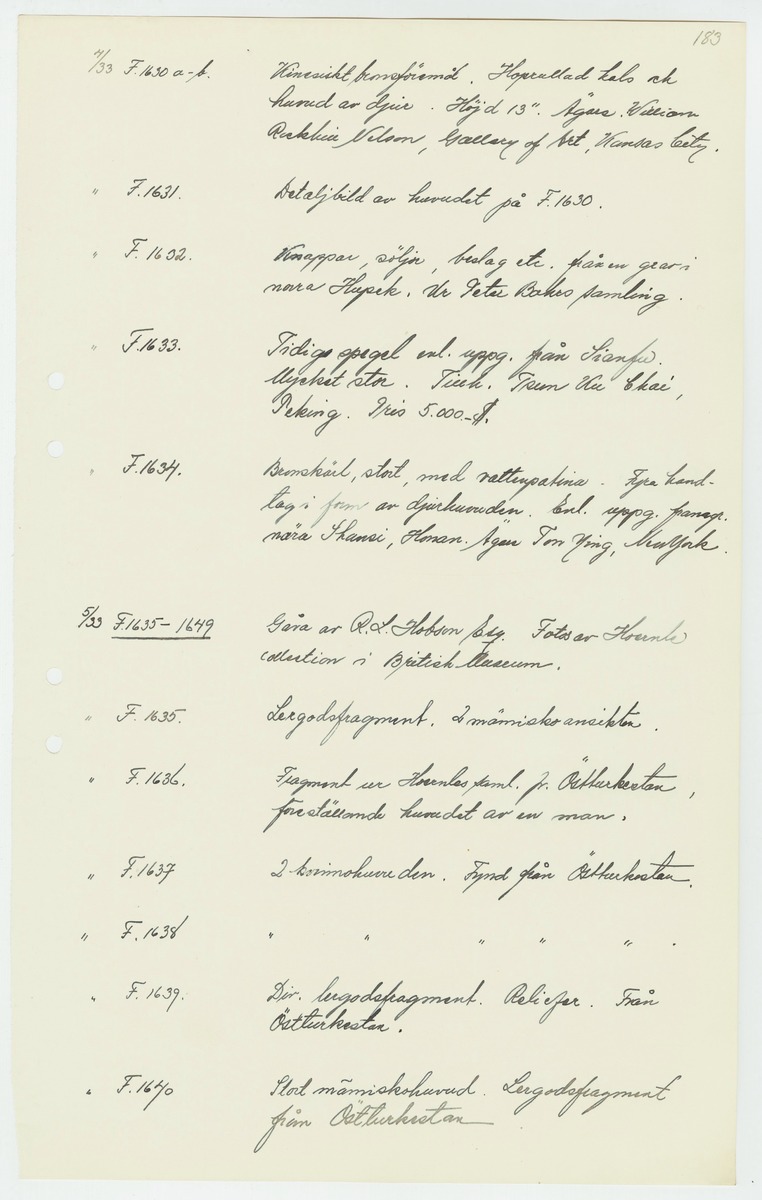 183
4/33 F.1630 a-b. Kinesiskt bronsföremål. Hoprullad hals och
huvud av djur. Höjd 13". Ägare. William
Rockhill Nelson, Gallery of Art, Kansas City.
" F.1631. Detaljbild av huvudet på F.1630.
" F.1632. Knappar, söljor, beslag etc. från en grav i
norra Hupeh. Ur Peter Bahrs samling.
" F.1633. Tidig spegel enl. uppg. från Sianfu.
Mycket stor. Tsun Ku Chai,
Peking. Pris 5.000-$.
" F.1634. Bronskärl, stort, med vattenpatina. Fyra hand-
tag i form av djurhuvuden. Enl. uppg. framgr.
nära Shansi, Honan. Ägare Ton Ying, New York.
5/33 F.1635-1649 Gåva av R.L. Hobson Esq. Foton av Hoernle
collection i British Museum.
" F.1635. Lergodsfragment. 2 människoansikten.
" F.1636. Fragment ur Hoernles saml. fr. Östturkestan,
föreställande huvudet av en man.
" F.1637 2 kvinnohuvuden. Fynd från Östturkestan.
" F.1638 " " " " " .
" F.1639. Div. lergodsfragment. Reliefer. Från
Östturkestan.
" F.1640 Stort människohuvud. Lergodsfragment
från Östturkestan